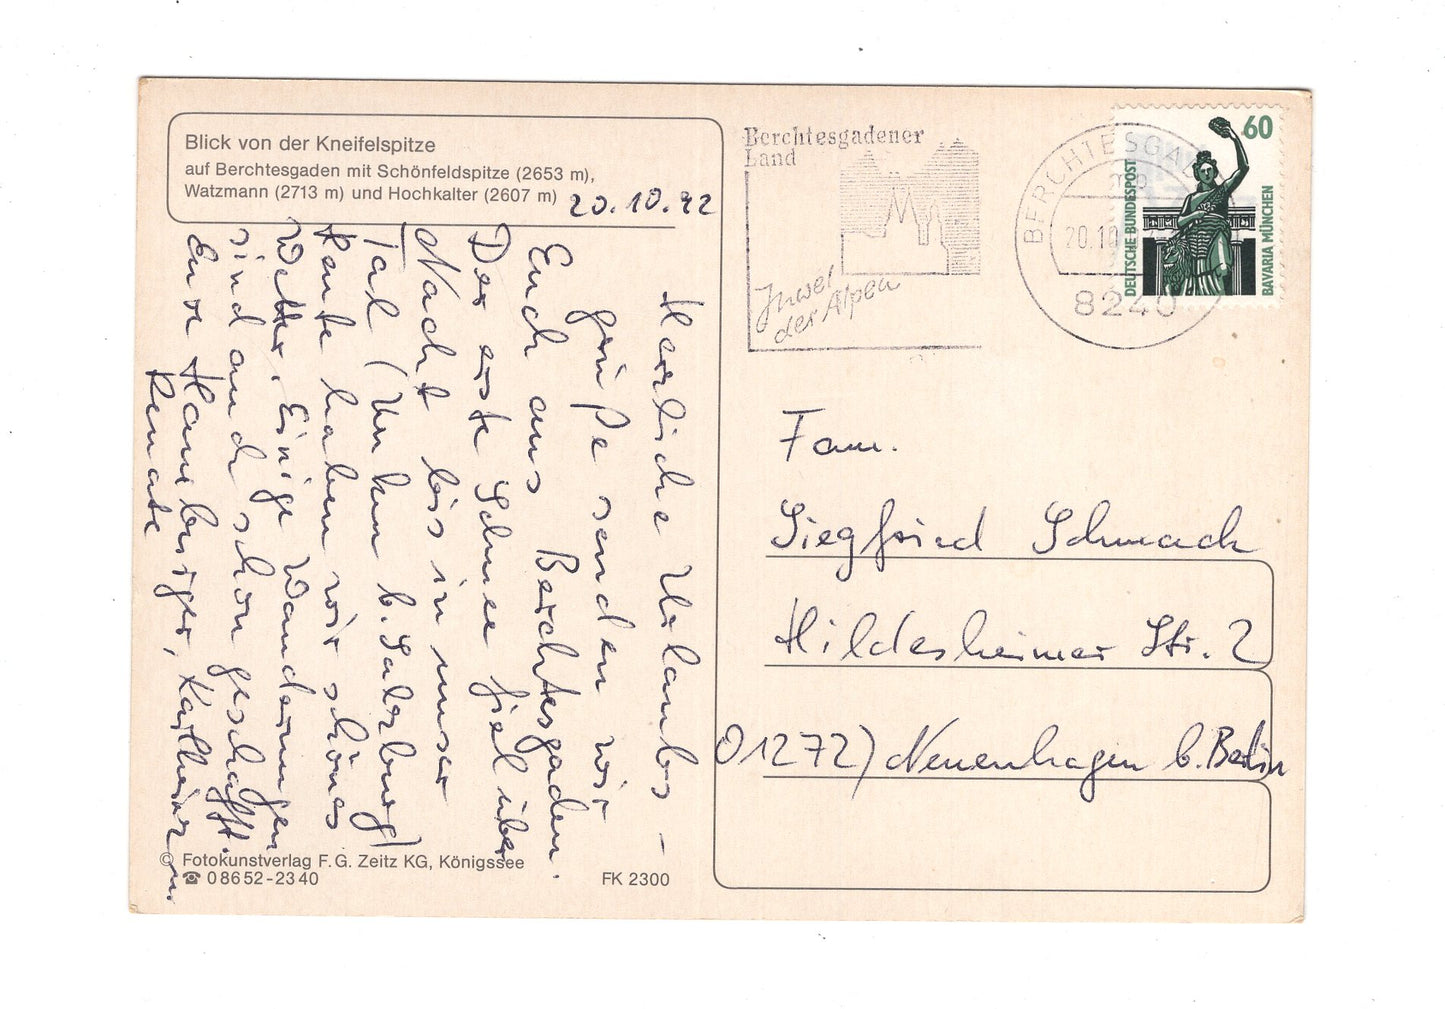 Blick von der Kneifelspitze
auf Berchtesgaden mit Schönfeldspitze (2653 m),
Watzmann (2713 m) und Hochkalter (2607 m)
20.10.92
Herzliche Urlaubs-
grüße senden wir
Euch aus Berchtesgaden.
Der erste Schnee fiel über
Nacht bis in unser
Tal (Unken b. Salzburg)
Heute haben wir schönes
Wetter. Einige Wanderungen
sind auch schon geschafft.
Eure Hamburger, Karlheinz u.
Renate
© Fotokunstverlag F. G. Zeitz KG, Königssee
☎ 0 86 52 - 23 40
FK 2300
Berchtesgadener
Land
Juwel
der Alpen
BERCHTESGADEN
20.10
8240
60
DEUTSCHE BUNDESPOST
BAVARIA MÜNCHEN
Fam.
Siegfried Schmack
Hildesheimer Str. 2
O1272) Neuenhagen b. Berlin